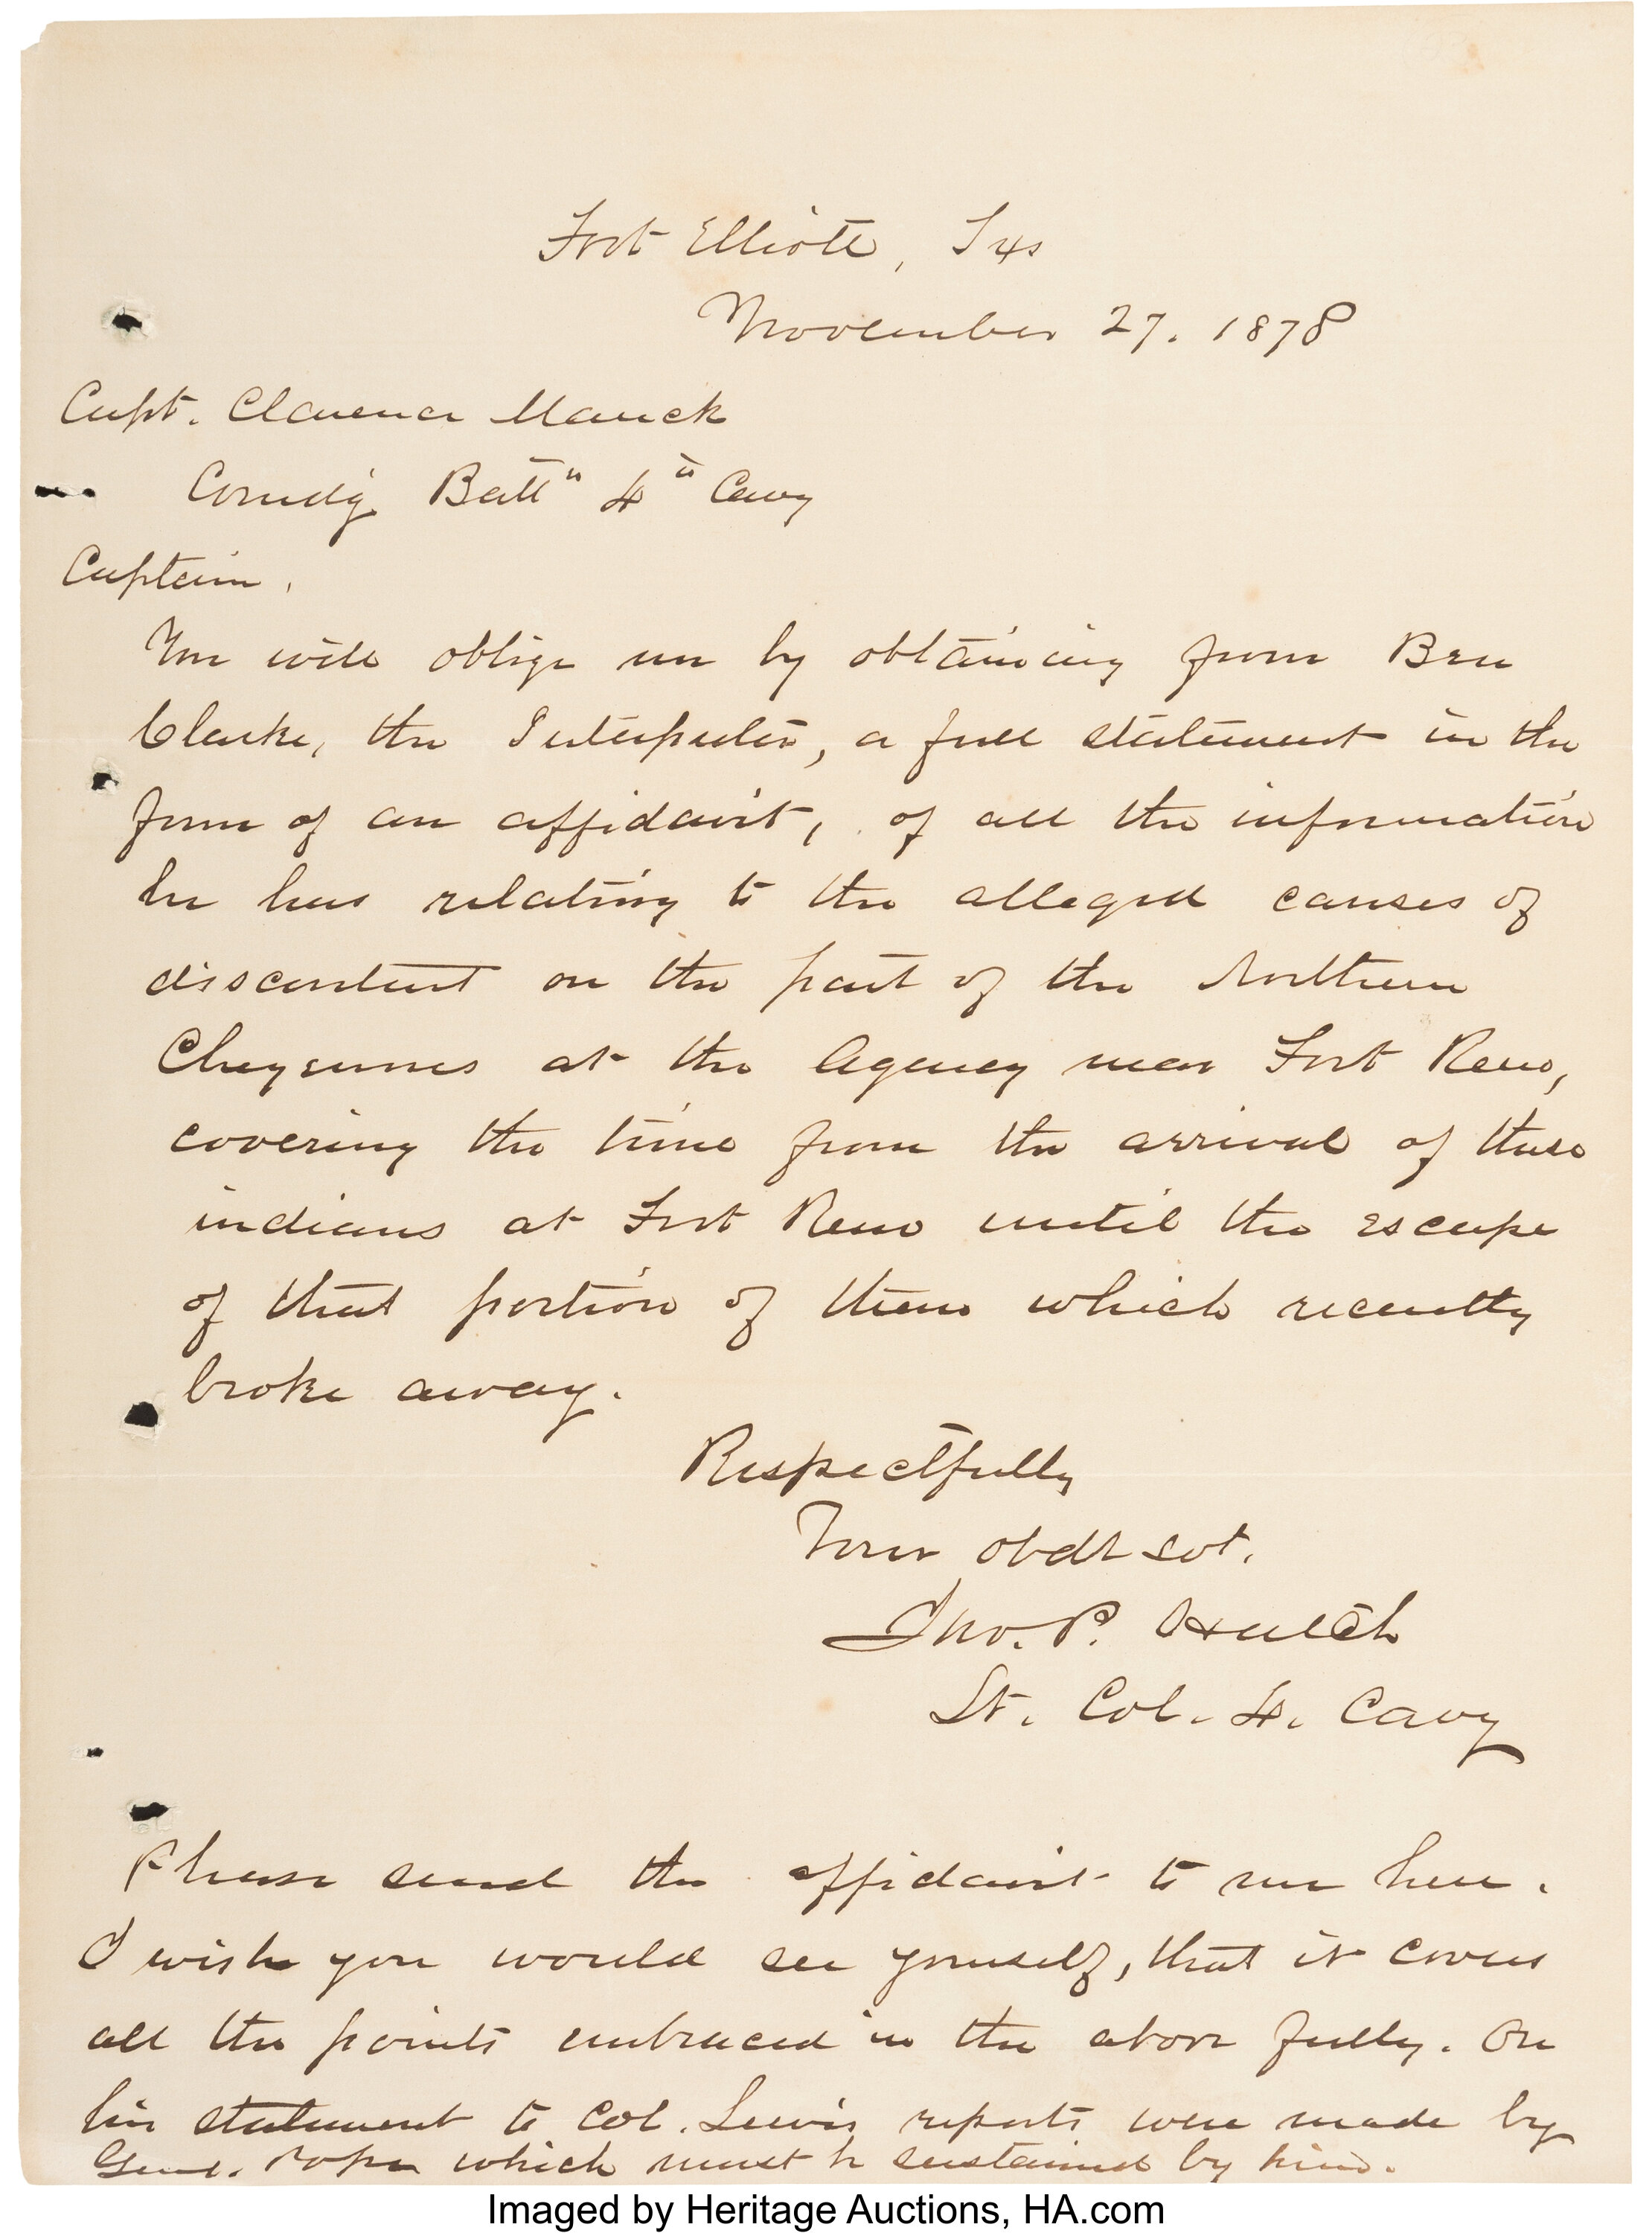 Fort Elliott, Txs
November 27. 1878
Capt. Clarence Mauck
Comdg Battn 4th Cavy
Captain.
You will oblige me by obtaining from Ben
Clarke, the Interpreter, a full statement in the
form of an affidavit, of all the information
he has relating to the alleged causes of
discontent on the part of the Northern
Cheyennes at the Agency near Fort Reno,
covering the time from the arrival of these
indians at Fort Reno until the escape
of that portion of them which recently
broke away.
Respectfully
Your obdt svt.
Jno. P. Hatch
Lt. Col. 4. Cavy
Please send the affidavit to me here.
I wish you would see yourself, that it covers
all the points embraced in the above fully. On
his statement to Col. Lewis reports were made by
Genl. Pope which must be sustained by him.
Imaged by Heritage Auctions, HA.com